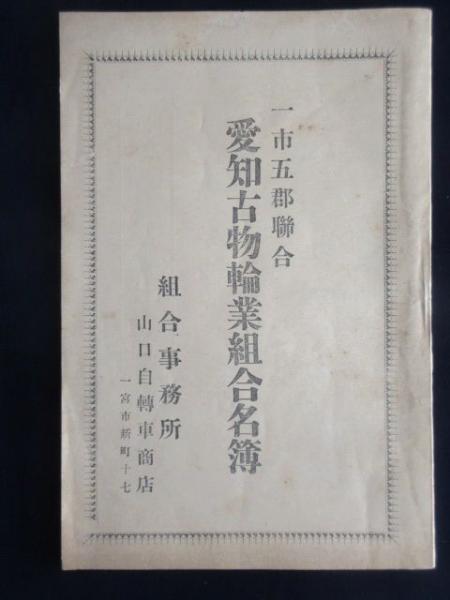 一市五郡聯合
愛知古物輪業組合名簿
組合事務所
山口自轉車商店
一宮市新町十七